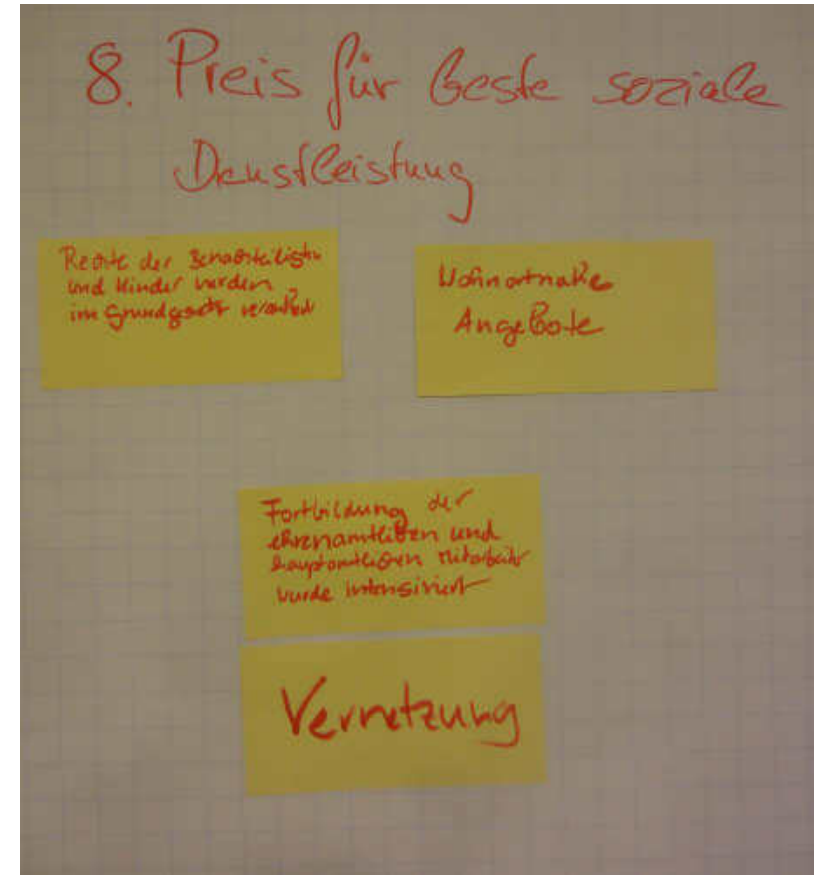 8. Preis für beste soziale
Dienstleistung
Rechte der Benachteiligten
und Kinder wurden
im Grundgesetz verankert
Wohnortnahe
Angebote
Fortbildung der
ehrenamtlichen und
hauptamtlichen Mitarbeiter
wurde intensiviert
Vernetzung